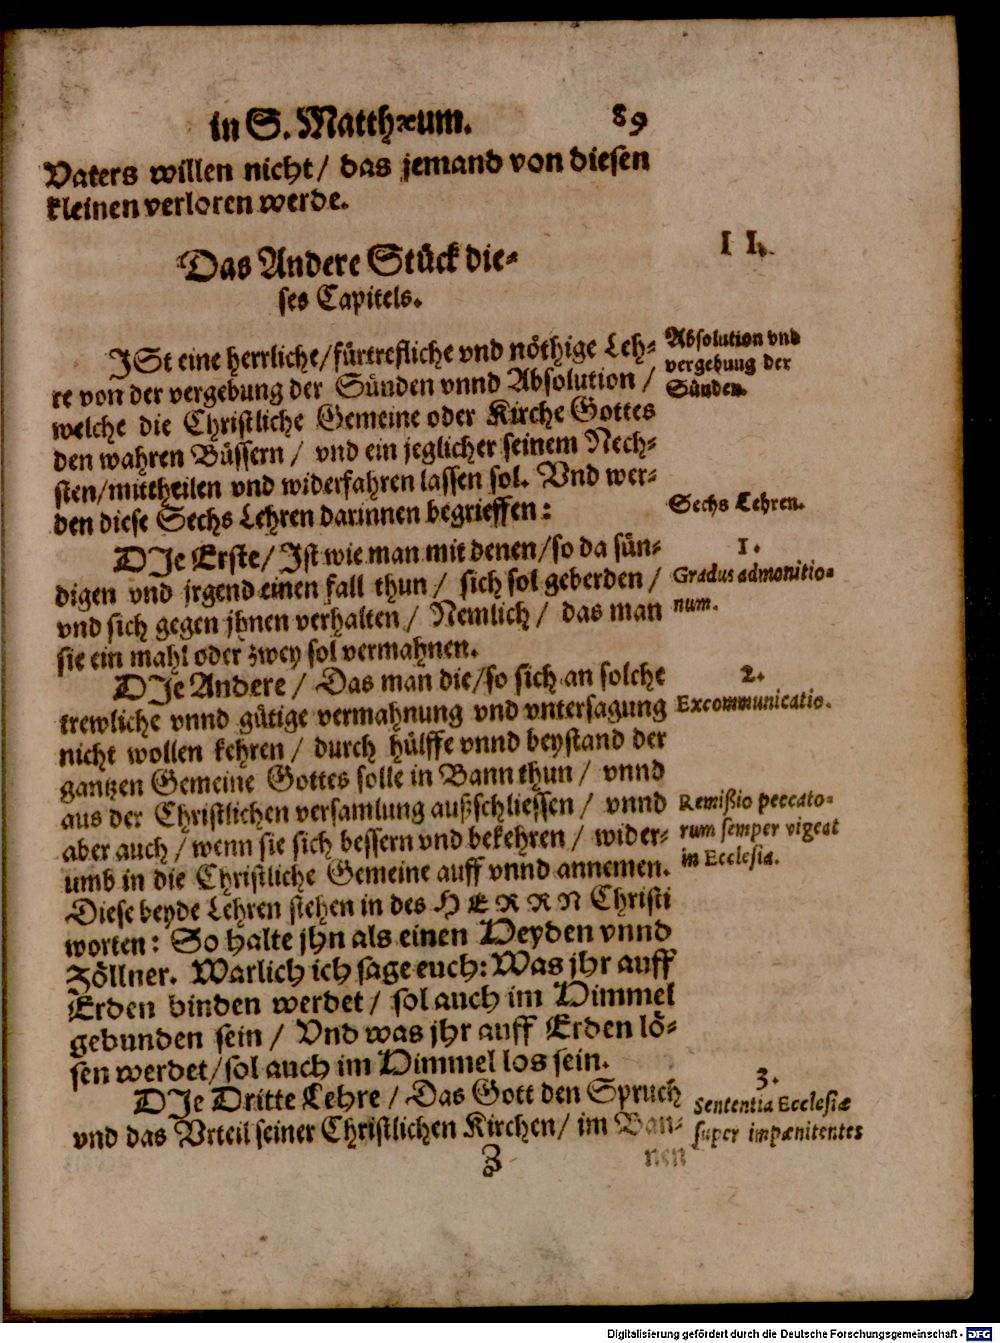 in S. Matthæum. 89
Vaters willen nicht / das jemand von diesen
kleinen verloren werde.
Das Andere Stück die-
ses Capitels.
II.
JSt eine herrliche/fürtrefliche vnd nöthige Leh-
re von der vergebung der Sünden vnnd Absolution /
welche die Christliche Gemeine oder Kirche Gottes
den wahren Büssern / vnd ein jeglicher seinem Nech-
sten/mittheilen vnd widerfahren lassen sol. Vnd wer-
den diese Sechs Lehren darinnen begrieffen:
Absolution vnd
vergebung der
Sünden.
Sechs Lehren.
DJe Erste/ Jst wie man mit denen/so da sün-
digen vnd jrgend einen fall thun / sich sol geberden /
vnd sich gegen jhnen verhalten / Nemlich / das man
sie ein mahl oder zwey sol vermahnen.
1.
Gradus admonitio-
num.
DJe Andere / Das man die/so sich an solche
trewliche vnnd gütige vermahnung vnd vntersagung
nicht wollen kehren / durch hülffe vnnd beystand der
gantzen Gemeine Gottes solle in Bann thun / vnnd
aus der Christlichen versamlung außschliessen / vnnd
aber auch / wenn sie sich bessern vnd bekehren / wider-
umb in die Christliche Gemeine auff vnnd annemen.
Diese beyde Lehren stehen in des HERRN Christi
worten: So halte jhn als einen Heyden vnnd
Zöllner. Warlich ich sage euch: Was jhr auff
Erden binden werdet / sol auch im Himmel
gebunden sein / Vnd was jhr auff Erden lö-
sen werdet/sol auch im Himmel los sein.
2.
Excommunicatio.
Remißio peccato-
rum semper vigeat
in Ecclesia.
DJe Dritte Lehre / Das Gott den Spruch
vnd das Vrteil seiner Christlichen Kirchen/ im Ban-
3.
Sententia Ecclesiæ
super impænitentes
Z
nen
Digitalisierung gefördert durch die Deutsche Forschungsgemeinschaft - DFG